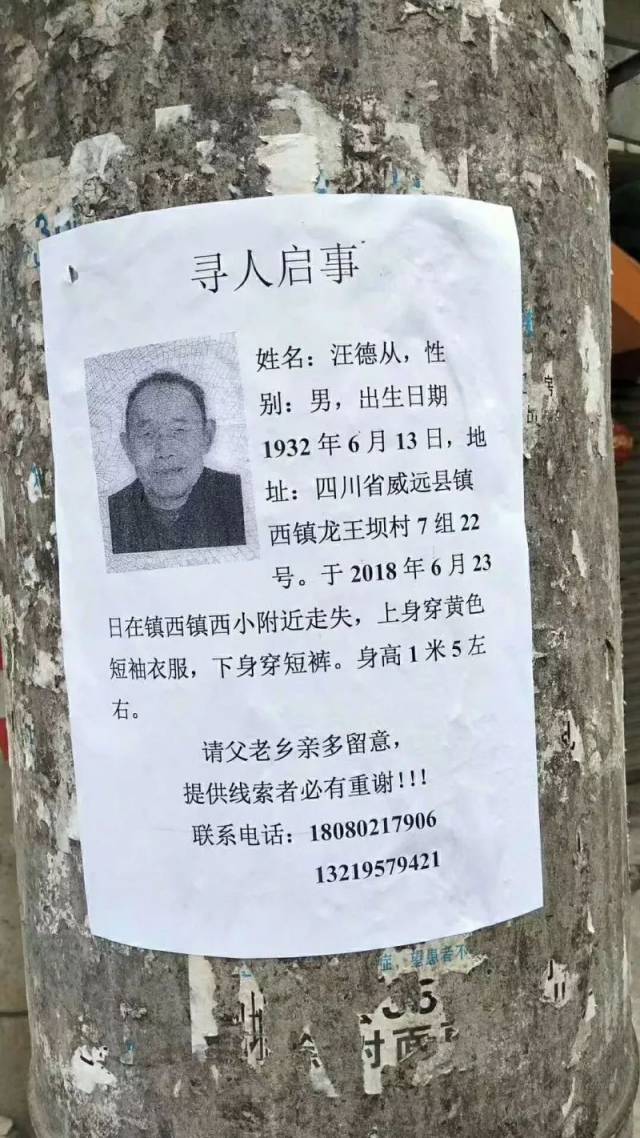 寻人启事
姓名：汪德从，性
别：男，出生日期
1932 年 6 月 13 日，地
址：四川省威远县镇
西镇龙王坝村 7 组 22
号。于 2018 年 6 月 23
日在镇西镇西小附近走失，上身穿黄色
短袖衣服，下身穿短裤。身高 1 米 5 左
右。
请父老乡亲多留意，
提供线索者必有重谢!!!
联系电话：18080217906
13219579421
症，望患者不